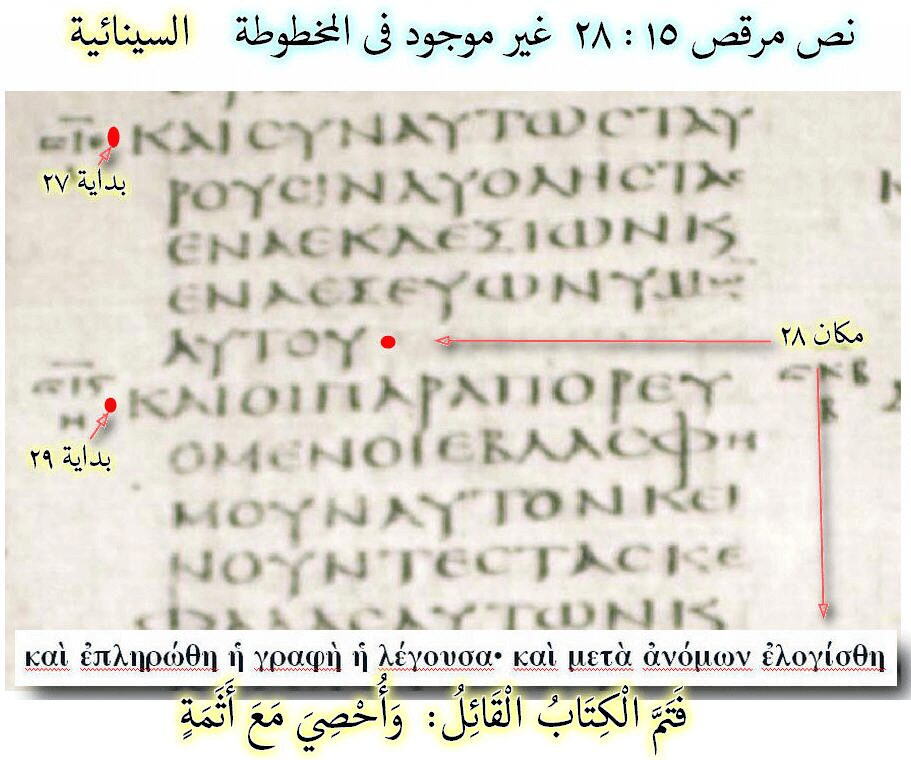 نص مرقص ١٥ : ٢٨ غير موجود فى المخطوطة السينائية
ΚΑΙϹΥΝΑΥΤΩϹΤΑΥ
بداية ٢٧
ΡΟΥϹΙΝΔΥΟΛΗϹΤΑϹ
ΕΝΑΕΚΔΕΞΙΩΝΚ
ΕΝΑΕΞΕΥΩΝΥΜΩ
ΑΥΤΟΥ
مكان ٢٨
ΚΑΙΟΙΠΑΡΑΠΟΡΕΥ
بداية ٢٩
ΟΜΕΝΟΙΕΒΛΑϹΦΗ
ΜΟΥΝΑΥΤΟΝΚΕΙ
ΝΟΥΝΤΕϹΤΑϹΚΕ
ΦΑΛΑϹΑΥΤΩΝΚ
καὶ ἐπληρώθη ἡ γραφὴ ἡ λέγουσα· καὶ μετὰ ἀνόμων ἐλογίσθη
فَتَمَّ الْكِتَابُ الْقَائِلُ: وَأُحْصِيَ مَعَ أَثَمَةٍ